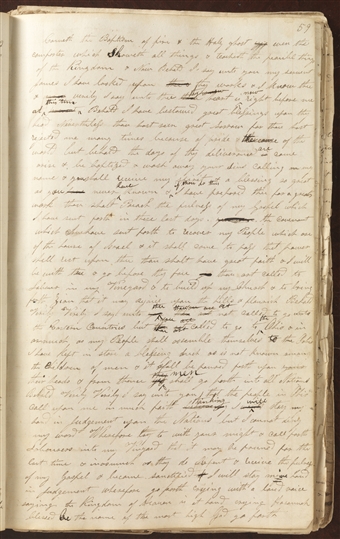 59
receiveth the Baptism of fire & the Holy ghost even the
comforter which Sheweth all things & teacheth the peacible things
of the Kingdom & now Behold I say unto you my servent
James I have looked upon thy works & I know thee
& verily I say unto thee thine heart is right before me
at this time & Behold I have bestowed great blessings upon thy
head nevertheless thou hast seen great sorrow for thou hast
rejected me many times because of pride & the cares of the
world but behold the days of thy deliverance are come
arise & be baptised & wash away your sins calling on
name & you shall receive my spirit & a blessing so great
as you never have known & if thou do this I have prepared thee for a greater
work thou shalt Preach the fulness of my Gospel which
I have sent forth in these last days the covenant
which I have sent forth to recover my People which are
of the house of Israel & it shall come to pass that power
shall rest upon thee thou shalt have great faith & I will
be with thee & go before thy face thou art called to
labour in my Vineyard & to build up my Church & to bring
forth Zion that it may rejoice upon the hills & flourish Behold
Verily Verily I say unto thee thou art not called to go into
the Eastern Countries but thou art called to go to the Ohio & in
asmuch as my People shall assemble themselves to the Ohio
I have kept in store a blessing such as is not known among
the Children of men & it shall be poured forth upon
their heads & from thence men shall go forth into all Nations
Behold Verily Verily I say unto you that the people in Ohio
call upon me in much faith thinking I will stay my
hand in Judgement upon the Nations but I cannot deny
my word Wherefore lay to with your might & call faithful
labourers into my Vinyard that it may be pruned for the
last time & inasmuch as they do repent & receive the fulness
of my Gospel & become sanctified I will stay mine hand
in Judgement wherefore go forth crying with a loud voice
saying the Kingdom of Heaven is at hand crying Hosannah
blessed be the name of the most high God go forth